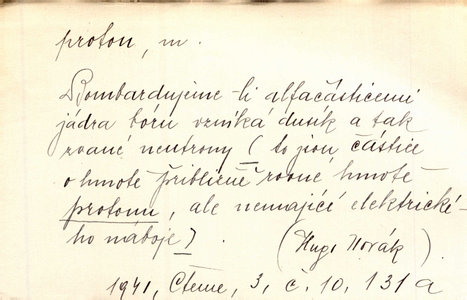 proton, m.
Bombardujeme-li alfačásticemi
jádra bóru vzniká dusík a tak
zvané neutrony (to jsou částice
o hmotě přibližně rovné hmotě
protonu, ale nemající elektrické-
ho náboje)
(Hugo Novák)
1941, Čteme, 3, č. 10, 131 a